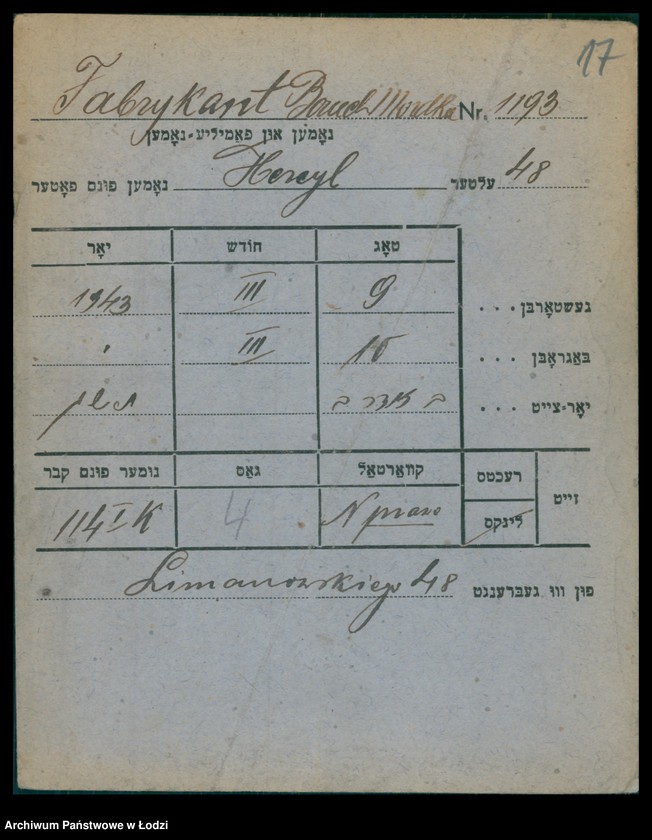 17
Fabrykant Bruch Mordka Nr. 1193
נאָמען און פאַמיליע-נאָמען
נאָמען פונם פאָטער Hercyl עלטער 48
טאָג חודש יאָר
געשטאָרבן . . . 9 III 1943
באַגראָבן . . . 10 III "
יאָר-צייט . . . ב אדר ב
זייט רעכטס קוואַרטאַל גאַס נומער פונם קבר
לינקס N prawo 4 114 I K
פון וווּ געברענגט Limanowskiego 48
Archiwum Państwowe w Łodzi